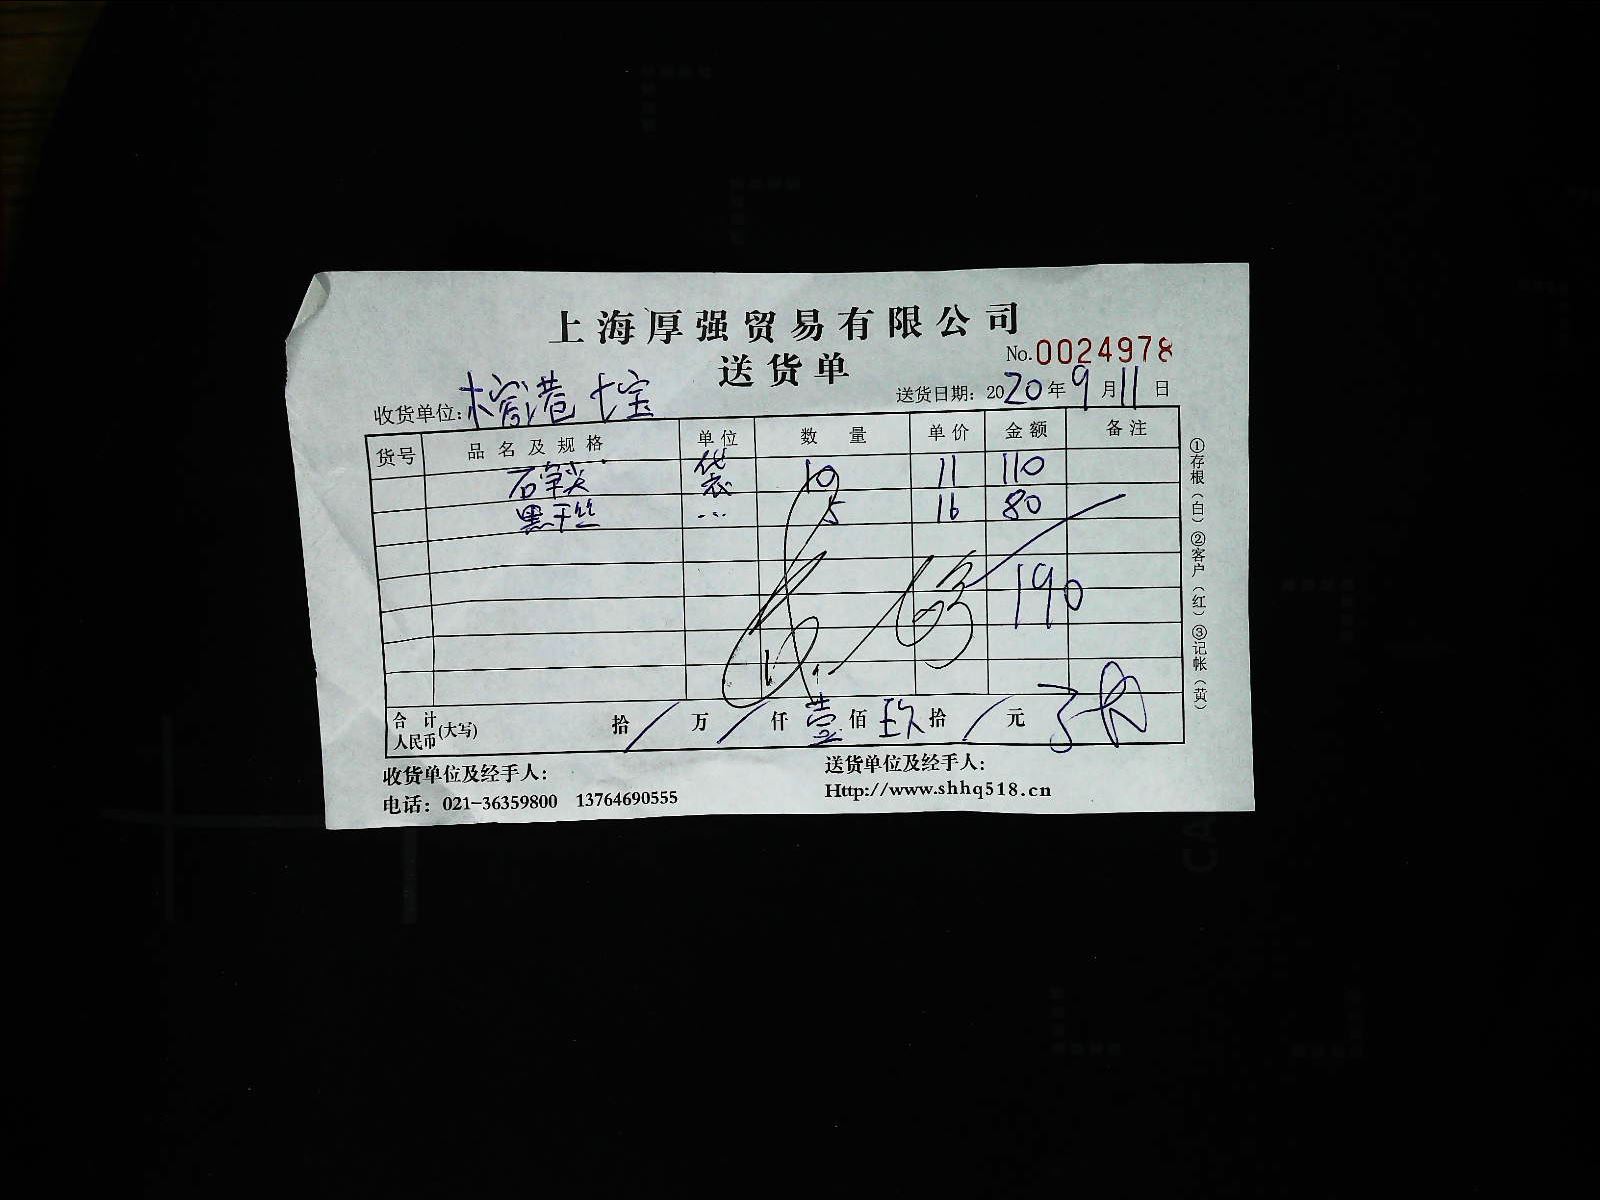 上海厚强贸易有限公司
送货单
No.0024978
收货单位: 榕港 七宝
送货日期: 2020年9月11日
货号 品名及规格 单位 数量 单价 金额 备注
袋 10 11 110
黑干丝 … 5 16 80
190
合计人民币(大写) 拾/万/仟壹佰玖拾/元
收货单位及经手人:
送货单位及经手人:
电话: 021-36359800 13764690555
Http://www.shhq518.cn
①存根(白)②客户(红)③记帐(黄)